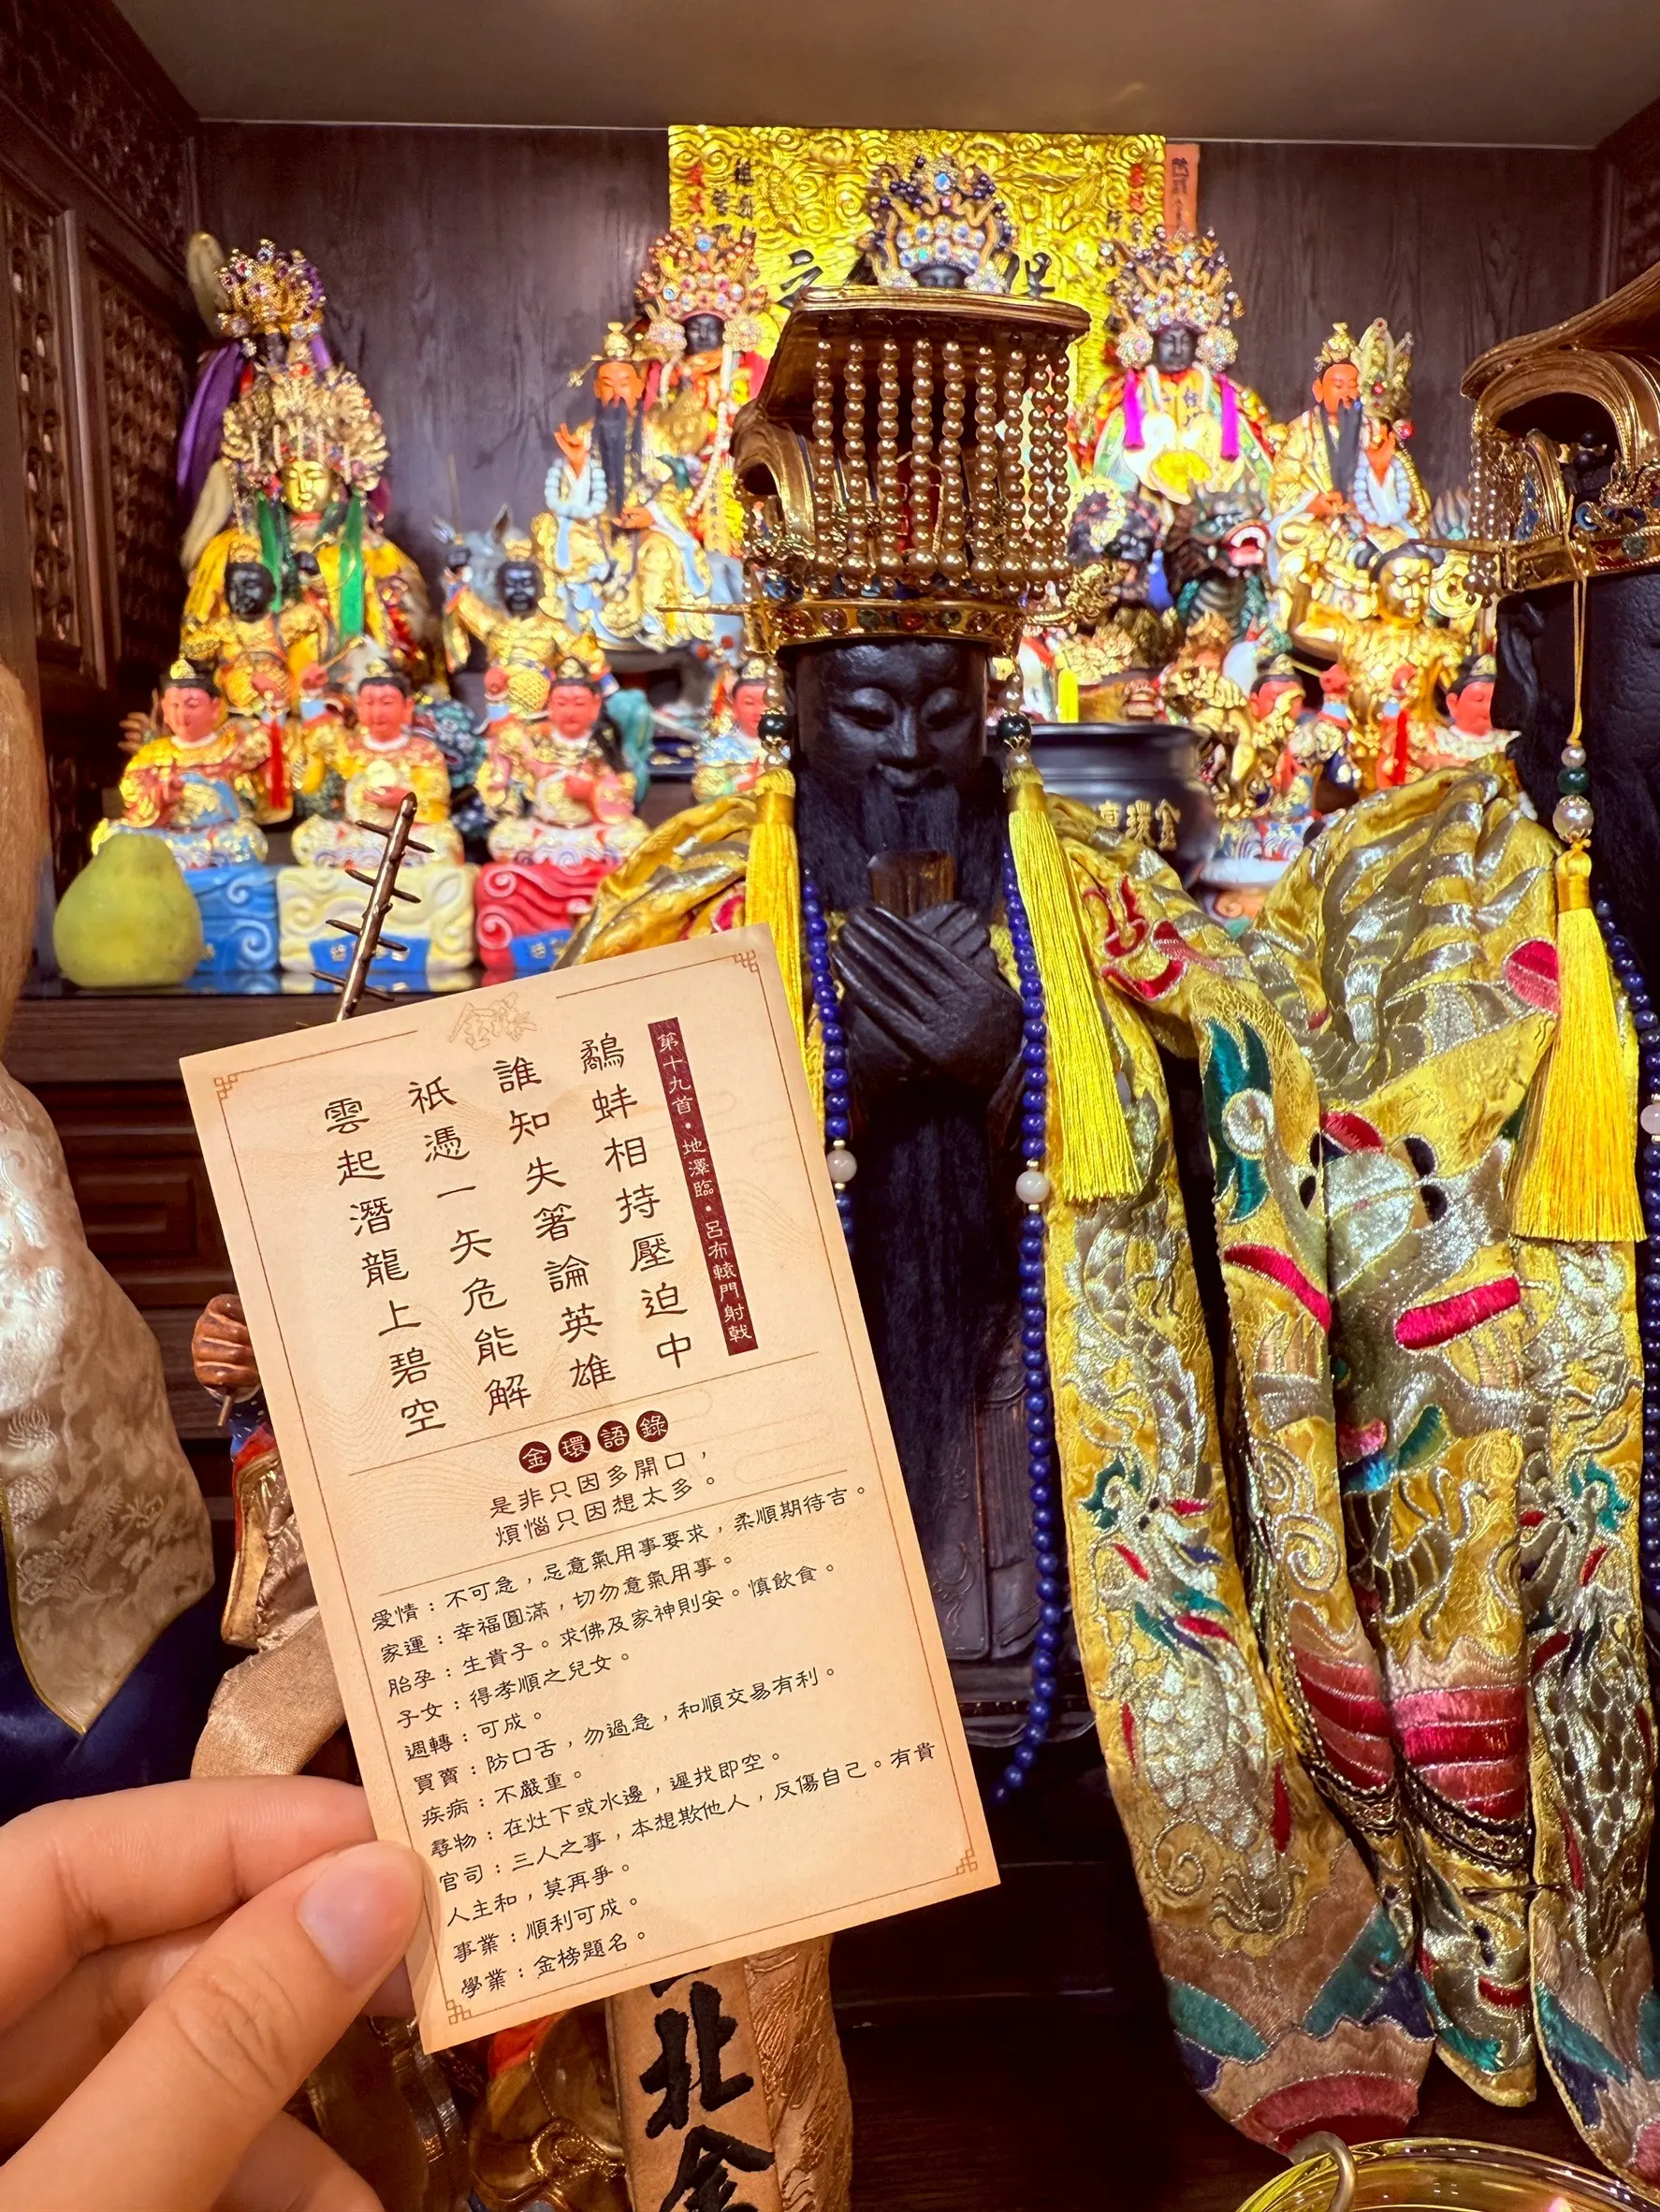 金環
第十九首・地澤臨・呂布轅門射戟
鷸蚌相持壓迫中
誰知失箸論英雄
祇憑一矢危能解
雲起潛龍上碧空
金環語錄
是非只因多開口，
煩惱只因想太多。
愛情：不可急，忌意氣用事要求，柔順期待吉。
家運：幸福圓滿，切勿意氣用事。
胎孕：生貴子。求佛及家神則安。慎飲食。
子女：得孝順之兒女。
週轉：可成。
買賣：防口舌，勿過急，和順交易有利。
疾病：不嚴重。
尋物：在灶下或水邊，遲找即空。
官司：三人之事，本想欺他人，反傷自己。有貴
人主和，莫再爭。
事業：順利可成。
學業：金榜題名。
北金